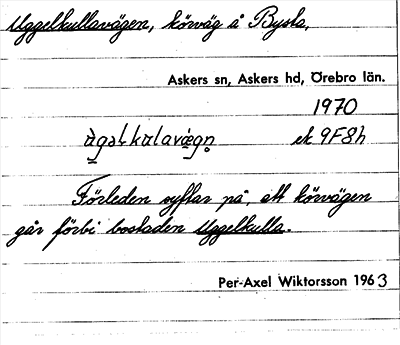 Uggelkullavägen, körväg å Bysta,
Askers sn, Askers hd, Örebro län.
1970
ek 9F8h
Förleden syftar på, att körvägen
går förbi bostaden Uggelkulla.
Per-Axel Wiktorsson 1963